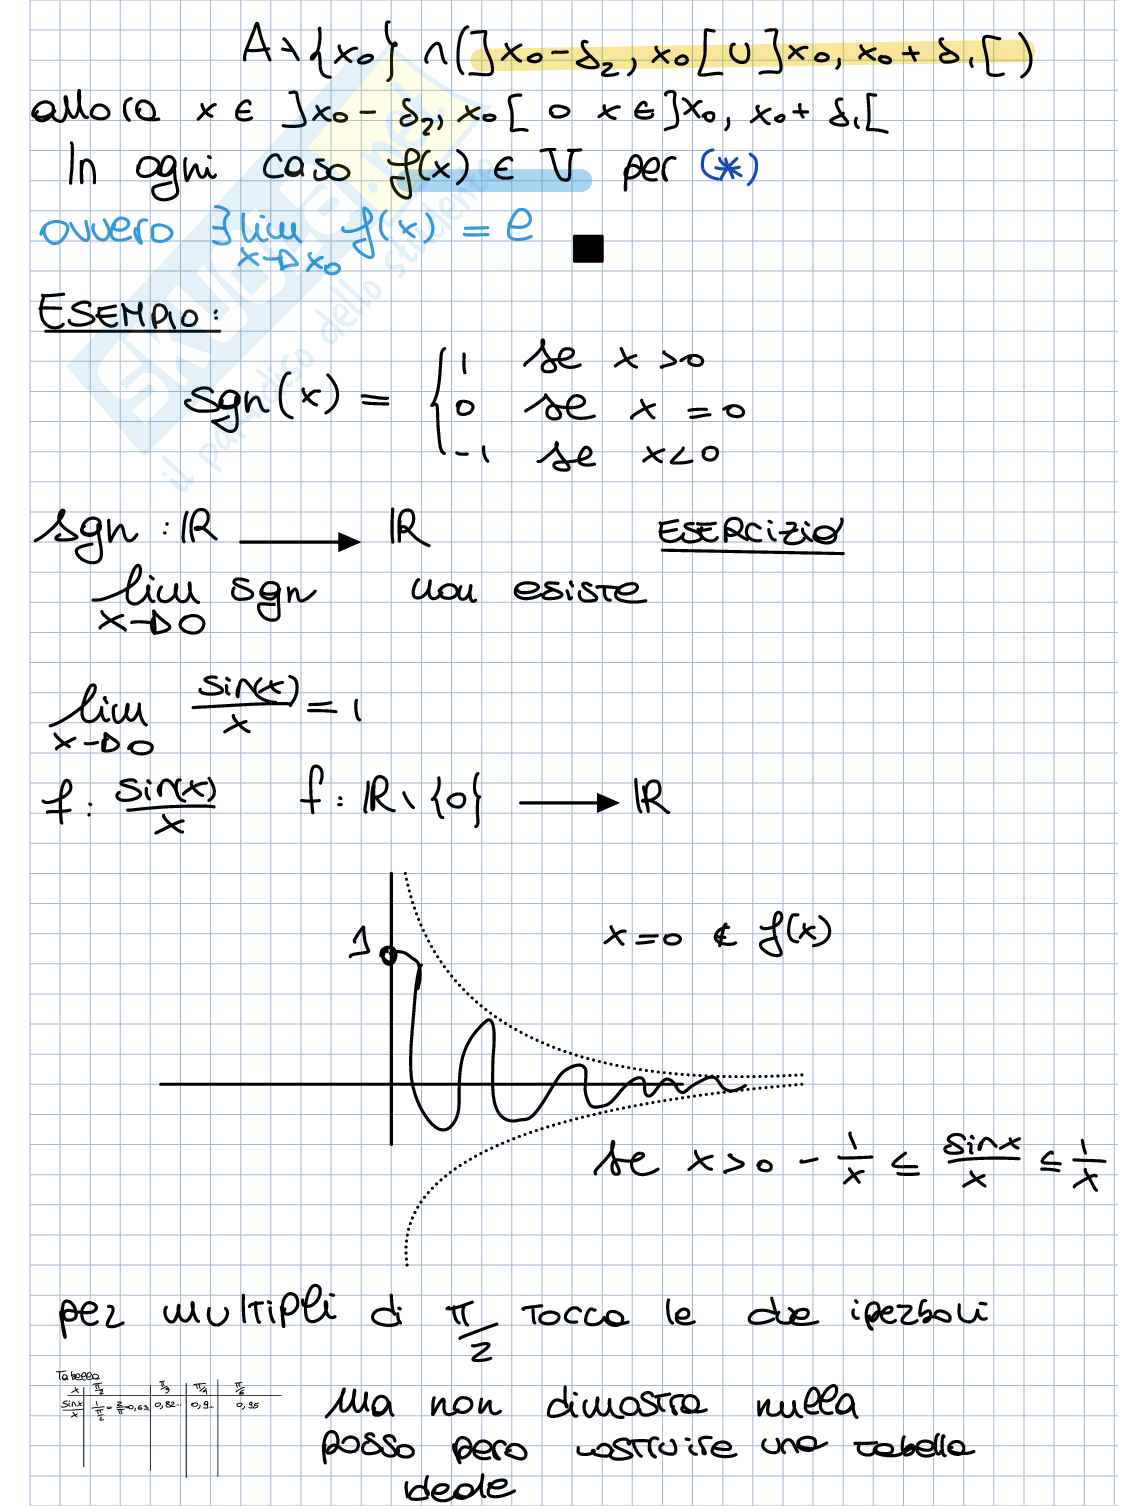 A∖{x₀} ∩(]x₀-δ₂, x₀[ ∪ ]x₀, x₀+δ₁[)
allora x ∈ ]x₀-δ₂, x₀[ o x ∈ ]x₀, x₀+δ₁[
In ogni caso f(x) ∈ V per (*)
ovvero ∃ lim x→x₀ f(x) = ℓ ■
SKUOLA.net
il paradiso dello studente
ESEMPIO:
sgn(x) = { 1 se x >0
0 se x =0
-1 se x<0
sgn : ℝ ⟶ ℝ ESERCIZIO
lim x→0 sgn non esiste
lim x→0 sin(x)/x = 1
f: sin(x)/x f: ℝ∖{0} ⟶ ℝ
1 x=0 ∉ f(x)
se x>0 -1/x ≤ sinx/x ≤ 1/x
per multipli di π/2 tocca le due iperboli
Tabella
x π/2 π/3 π/4 π/6
sinx/x 1/(π/2) = 2/π=0,63 0,82.. 0,9.. 0,95
Ma non dimostra nulla
posso pero costruire una tabella
ideale